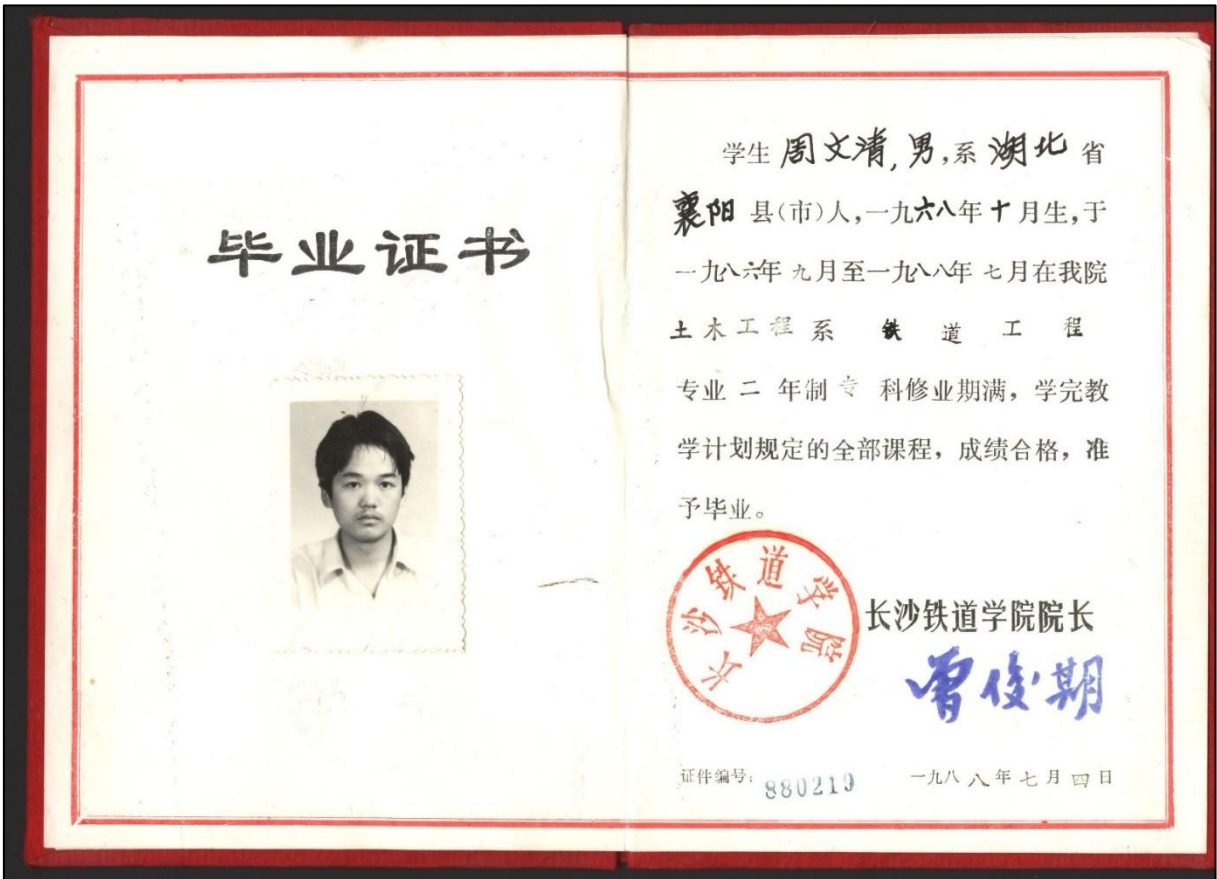 毕业证书
学生周文清,男,系湖北省
襄阳县(市)人,一九六八年十月生,于
一九八六年九月至一九八八年七月在我院
土木工程系 铁道工程
专业二年制专科修业期满，学完教
学计划规定的全部课程，成绩合格，准
予毕业。
长沙铁道学院
长沙铁道学院院长
曾俊期
证件编号：880219 一九八八年七月四日